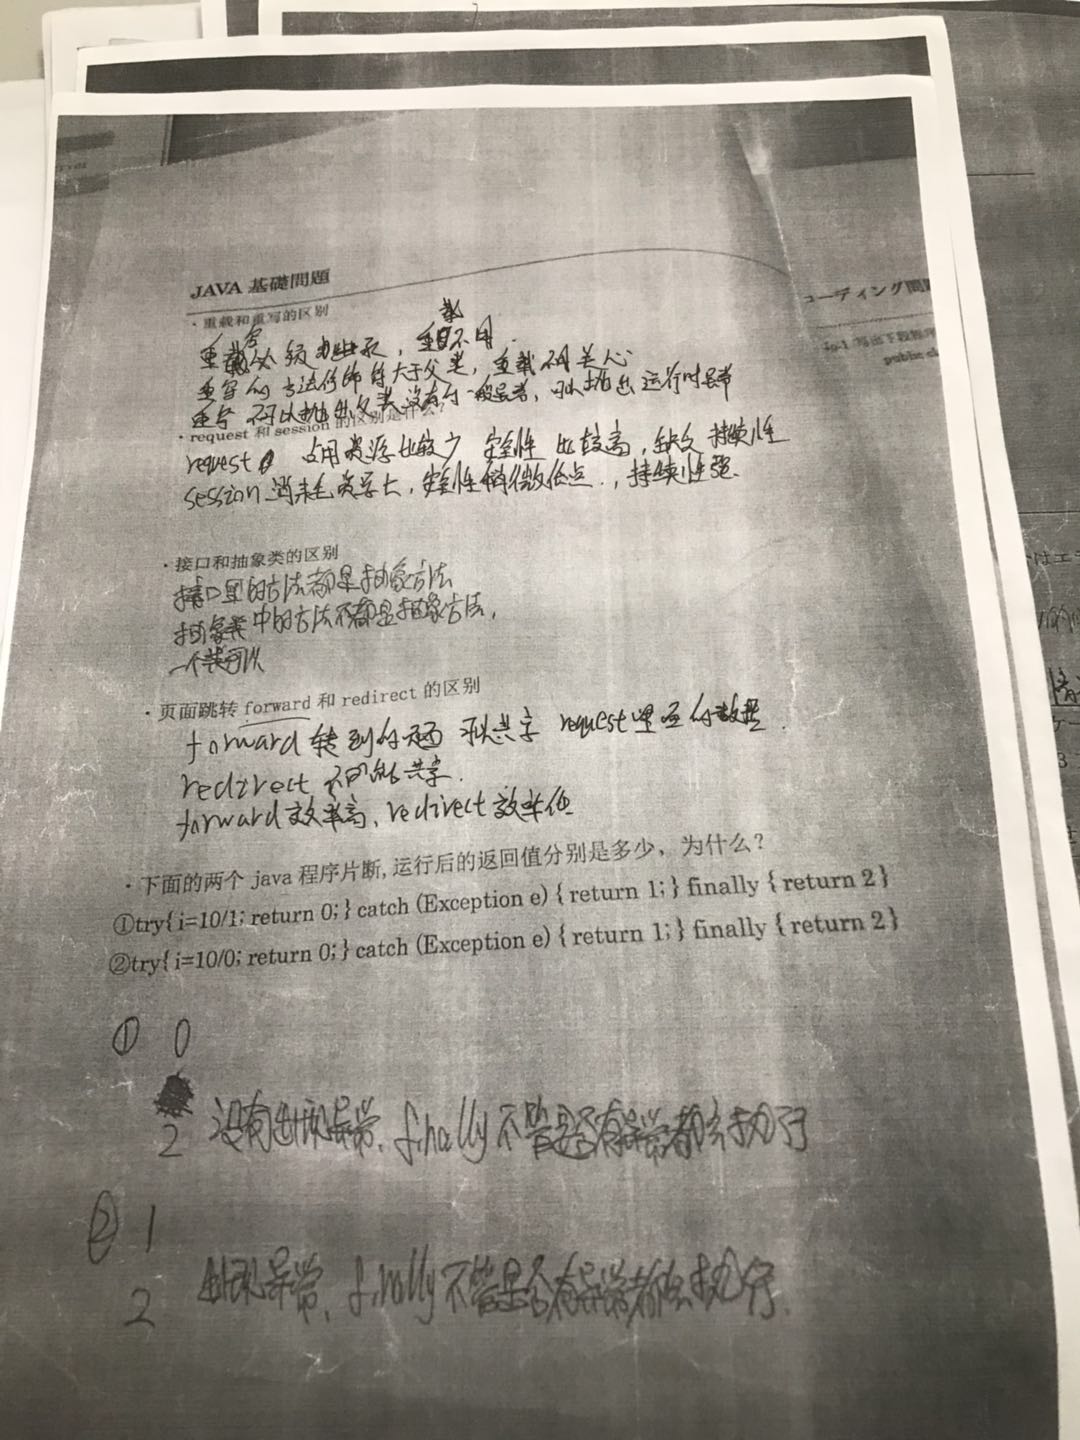 JAVA 基礎問題
・重载和重写的区别
写
载
重 必须 继承，重 不用．
重写的方法修饰符大于父类，重载不关心
重写 不可以抛出父类没有的一般异常，可以抛出运行时异常
・request 和 session 的区别是什么？
request 占用资源比较少 安全性 比较高，缺乏 持续性
session 消耗资源大，安全性稍微低点．，持续性强．
・接口和抽象类的区别
接口里的方法都是抽象方法
抽象类中的方法不都是抽象方法，
一个类可以
・页面跳转 forward 和 redirect 的区别
forward 转到的页面 可以共享 request里面的数据．
redirect 不能共享．
forward效率高、redirect效率低
・下面的两个 java 程序片断,运行后的返回值分别是多少，为什么？
①try{ i=10/1; return 0; } catch (Exception e) { return 1; } finally { return 2 }
②try{ i=10/0; return 0; } catch (Exception e) { return 1; } finally { return 2 }
① 0
2 没有出现异常、finally不管是否有异常都会执行
② 1
2 出现异常、finally不管是否有异常都会执行．
ーディング問
写出下
public cl
はエ